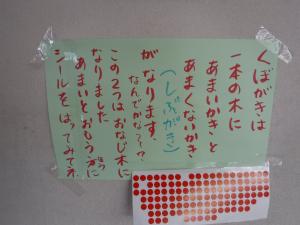 くぼがきは
一本の木に
あまいかきと
あまくないかき、
(しぶがき)
がなります。
なんでかな～？
この２つはおなじ木に
なりました
あまいとおもう方に
ほう
シールをはってみてネ